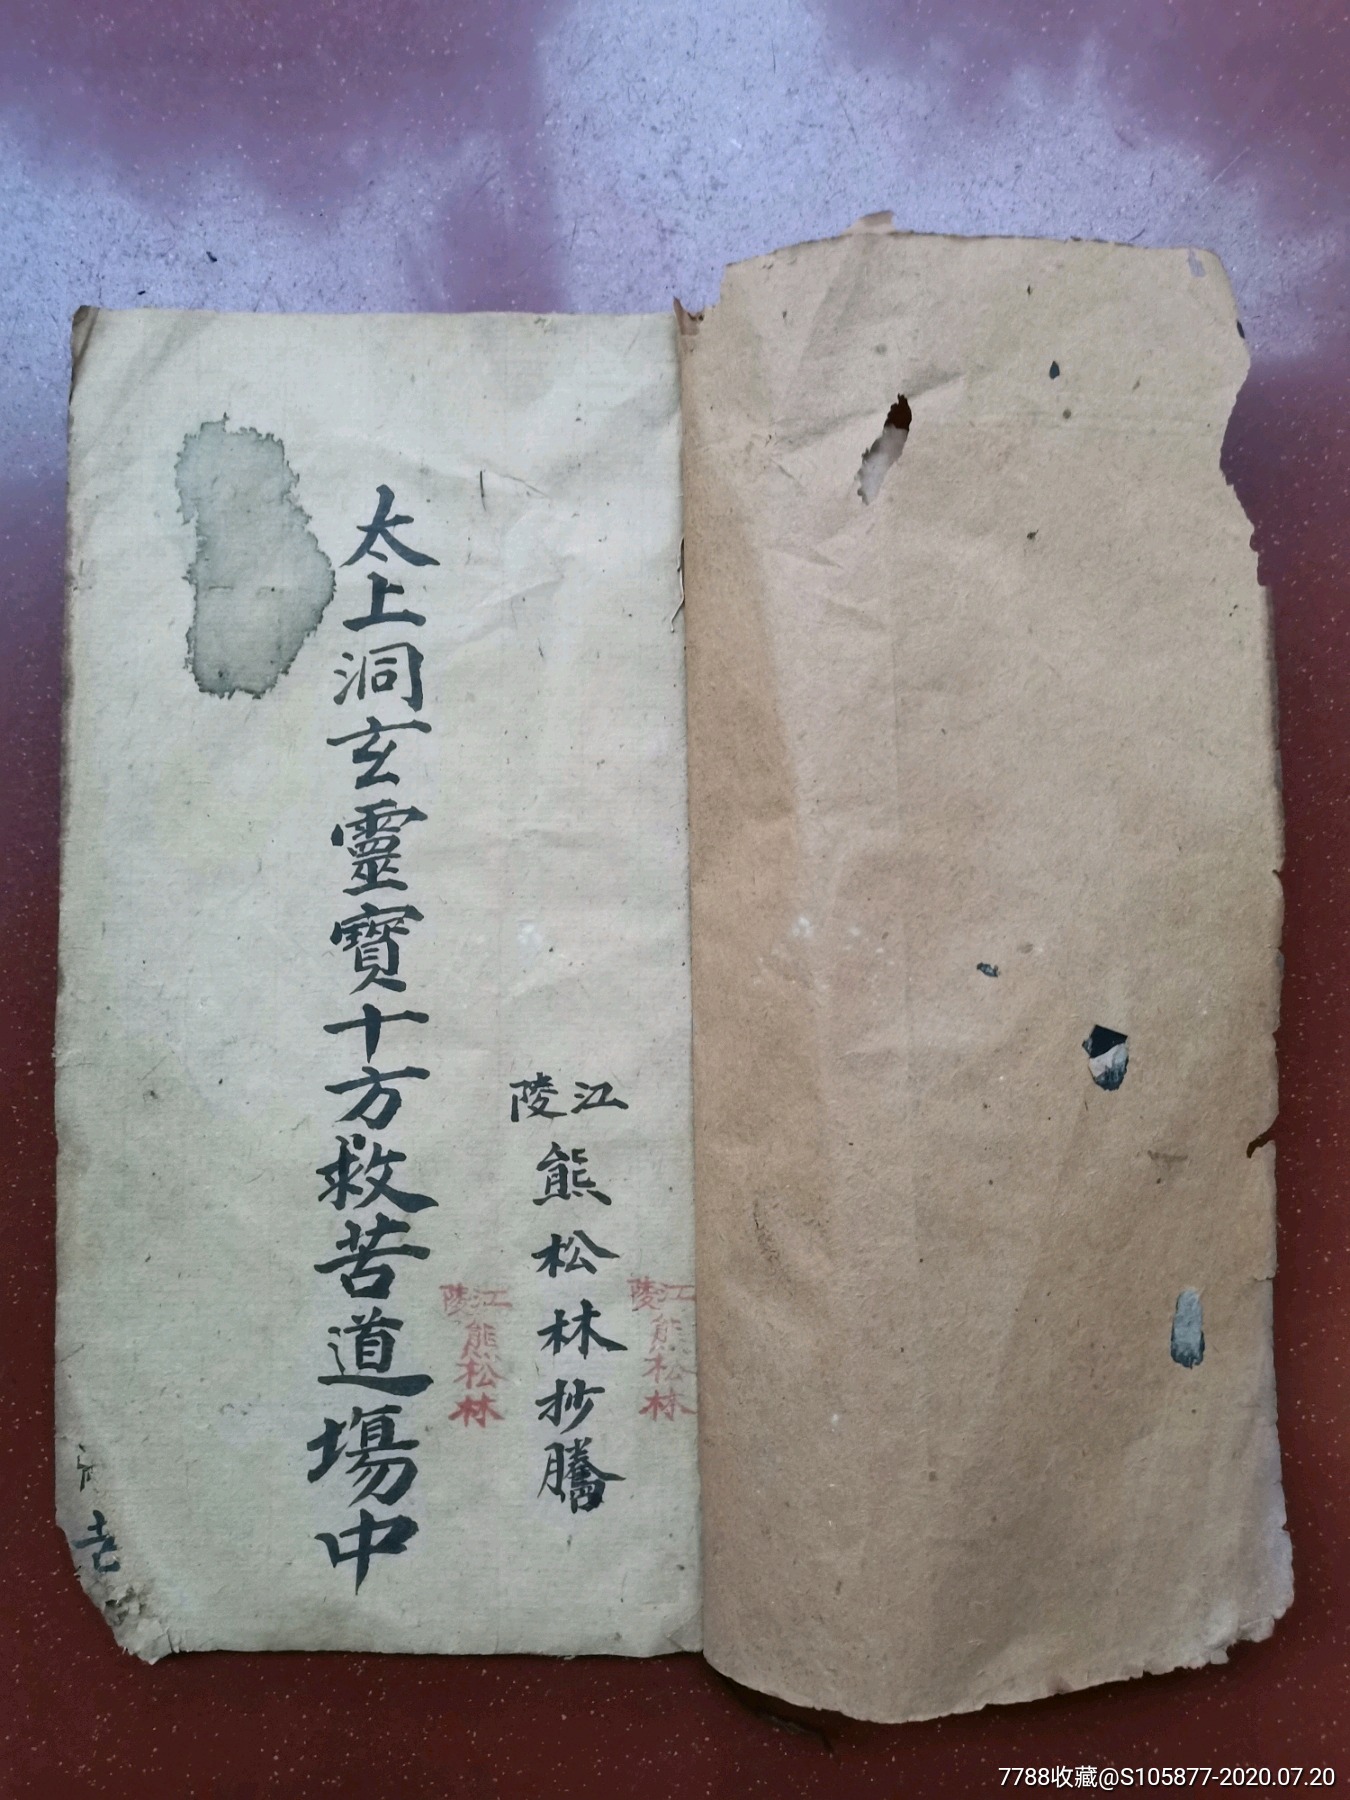 江陵
熊松林抄謄
江陵
熊松林
江陵
熊松林
太上洞玄靈寶十方救苦道塲中
7788收藏@S105877-2020.07.20